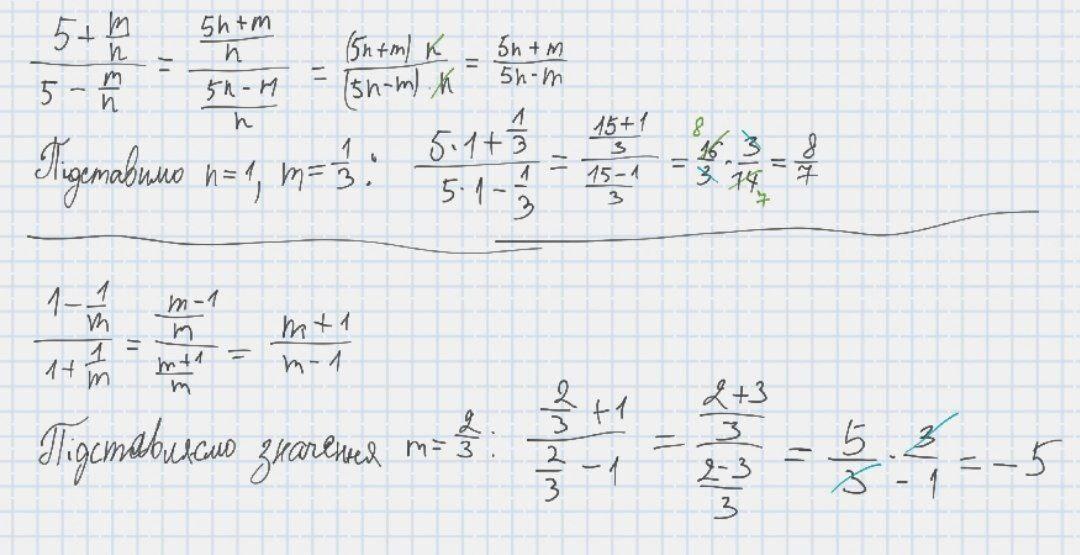 (5 + m/n)/(5 - m/n) = ((5n+m)/n)/((5n-m)/n) = ((5n+m) n)/((5n-m)·n) = (5n+m)/(5n-m)
Підставимо n=1, m=1/3: (5·1+1/3)/(5·1-1/3) = ((15+1)/3)/((15-1)/3) = 8 16/3 · 3/14 7 = 8/7
(1-1/m)/(1+1/m) = ((m-1)/m)/((m+1)/m) = (m+1)/(m-1)
Підставляємо значення m=2/3: (2/3+1)/(2/3-1) = ((2+3)/3)/((2-3)/3) = 5/3 · 3/-1 = -5